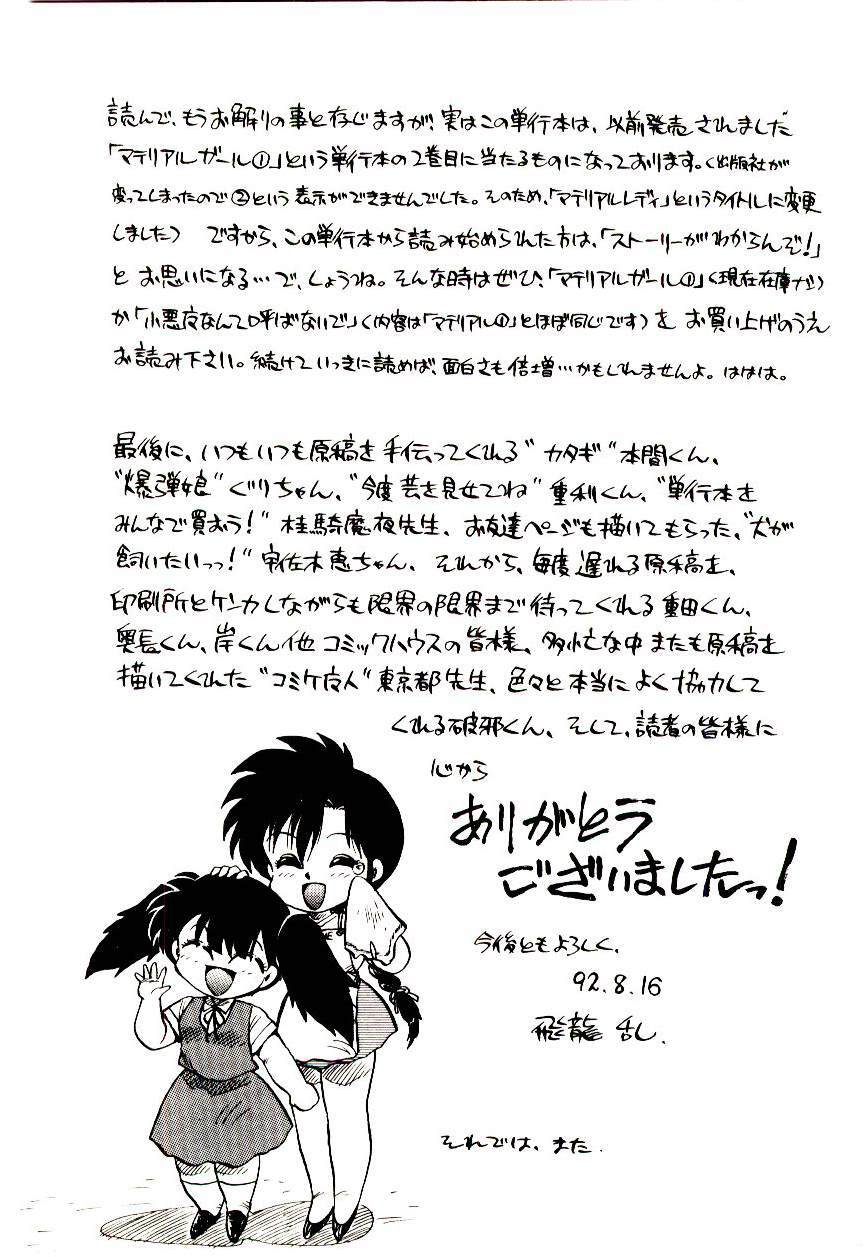 読んで、もうお解りの事と存じますが、実はこの単行本は、以前発売されました
「マテリアルガール①」という単行本の2巻目に当たるものになっております。(出版社が
変ってしまったので②という表示ができませんでした。そのため、「マテリアルレディ」というタイトルに変更
しました) ですから、この単行本から読み始められた方は、「ストーリーがわからんぞ!」
と お思いになる…で、しょうね。そんな時はぜひ、「マテリアルガール①」(現在在庫ナシ)
か「小悪夜なんて呼ばないで」(内容は「マテリアル①」とほぼ同じです)を お買い上げのうえ
お読み下さい。続けていっきに読めば、面白さも倍増…かもしれませんよ。ははは。
最後に、いつもいつも原稿を手伝ってくれる"カタギ"本間くん、
"爆弾娘"ぐりちゃん、"今度芸を見せてね"重利くん、"単行本を
みんなで買おう!"桂騎魔夜先生、お友達ページも描いてもらった、"犬が
飼いたいっっ!"宇佐木恵ちゃん、それから、毎度遅れる原稿を、
印刷所とケンカしながらも限界の限界まで待ってくれる重田くん、
奥長くん、岸くん他 コミックハウスの皆様、多忙な中またも原稿を
描いてくれた"コミケ友人"東京都先生、色々と本当によく協力して
くれる破邪くん、そして、読者の皆様に
心から
ありがとう
ございましたっ!
今後ともよろしく、
92.8.16
飛龍 乱し.
それでは、また.